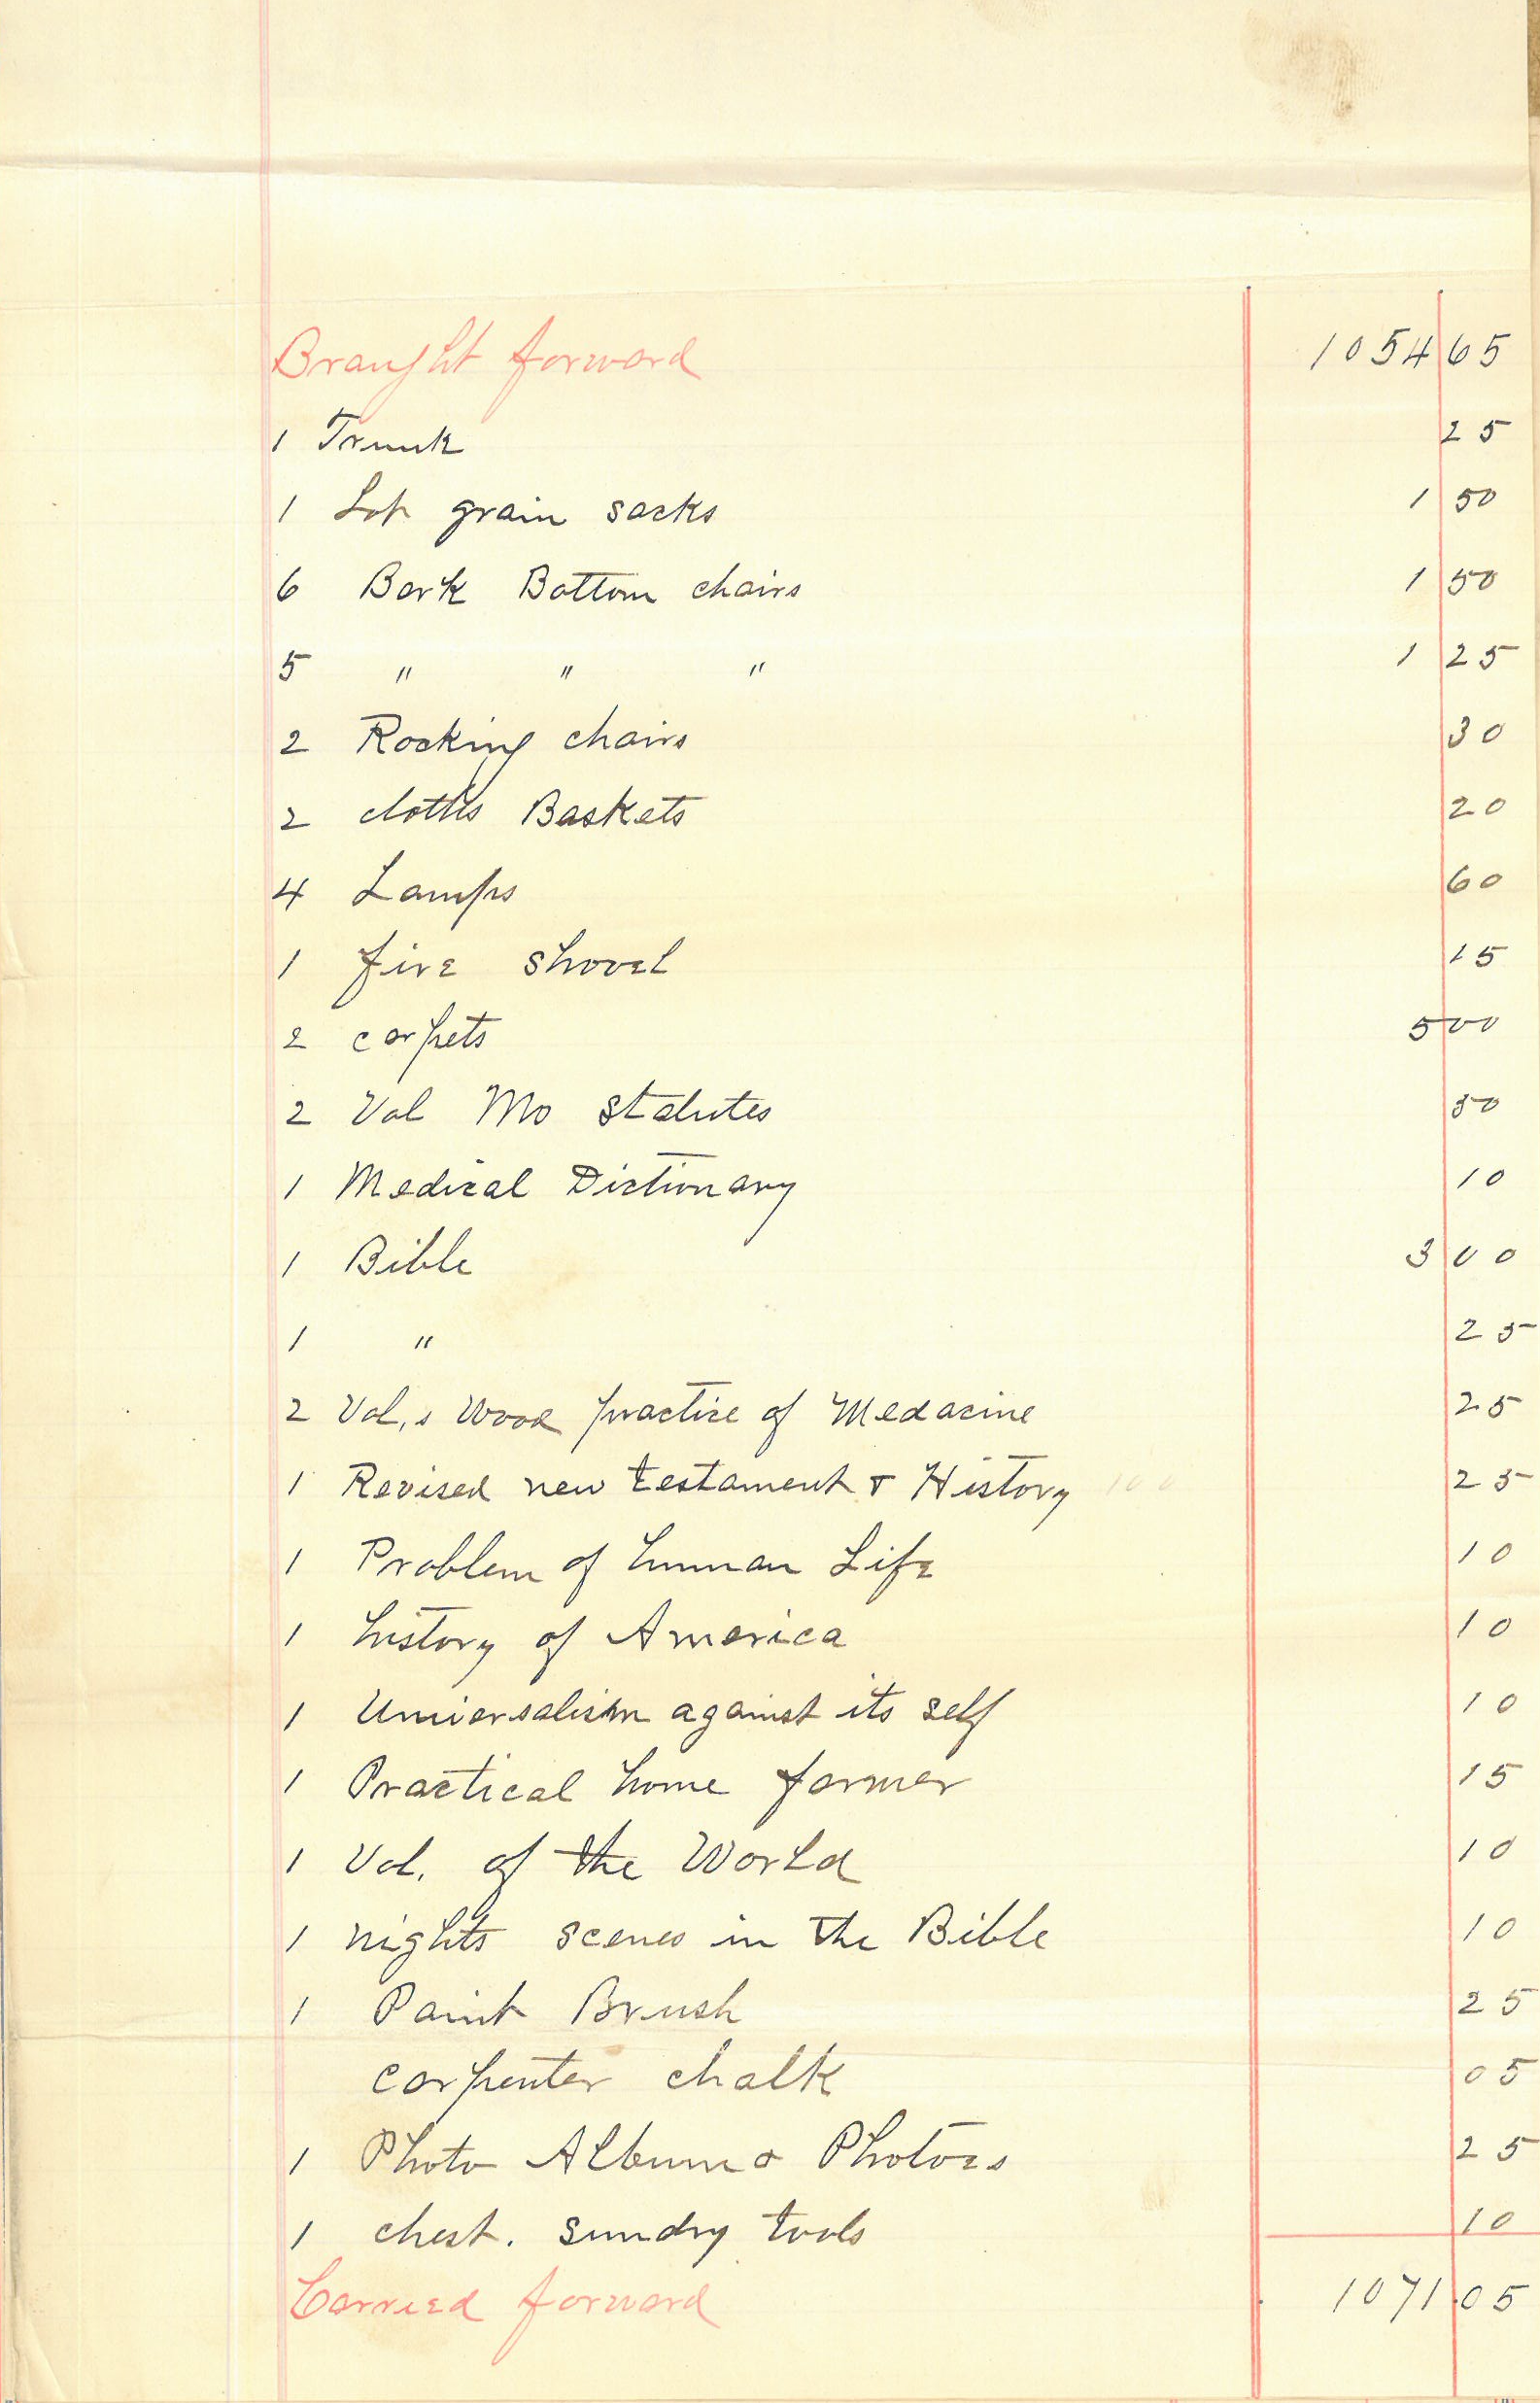 Braught forward 1054 65
1 Trunk 25
1 Lot grain sacks 1 50
6 Bark Bottom chairs 1 50
5 " " " 1 25
2 Rocking chairs 30
2 cloths Baskets 20
4 Lamps 60
1 fire shovel 15
2 carpets 5 00
2 Vol Mo statutes 50
1 Medical Dictionary 10
1 Bible 3 00
1 " 25
2 Vol,s Wood practice of Medacine 25
1 Revised new testament & History 100 25
1 Problem of human Life 10
1 history of America 10
1 Universalism against its self 10
1 Practical home farmer 15
1 Vol. of the World 10
1 nights scenes in the Bible 10
1 Paint Brush 25
carpenter chalk 05
1 Photo Album & Photoes 25
1 chest. sundry tools 10
Carried forward 1071 05